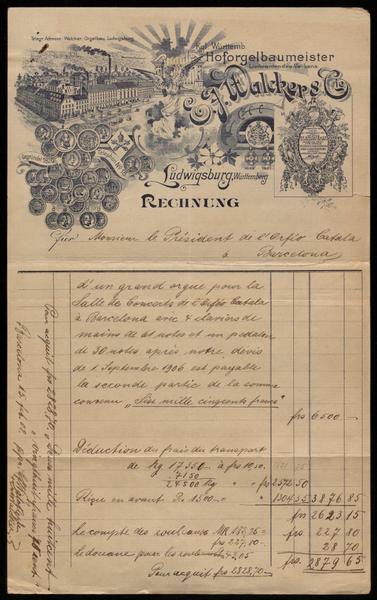 Telegr. Adresse: Walcker, Orgelbau, Ludwigsburg.
Kgl. Württemb.
Hoforgelbaumeister
E. F. Walcker & Cie
Ludwigsburg, Württemberg
RECHNUNG
für Monsieur le Président de l'Orfeó Català
à Barcelona
d'un grand orgue pour la
Salle de Concerts de l'Orfeó Català
à Barcelona avec 4 claviers de
mains de 61 notes et un pedalier
de 30 notes après notre devis
de 1. Septembre 1906 est payable
la seconde partie de la somme
convenu "Six mille cinqcents francs"
frs 6500 —
Déduction du frais du transport
de Kg 17350 à frs 10.50
7150
24500 Kg " frs 2572 50
1304 35 3876 85
frs 2623 15
le compte des rouleaux MK 182,25 =
frs 227,80 " 227 80
le douane pour les rouleaux 28 70
frs. 2879 65
Pour acquit frs 2828,70 —
Pour acquit frs 2828,70, Deux mille huitcent
vingthuit francs 70 cent.
Barcelona 15. Feb. 08.